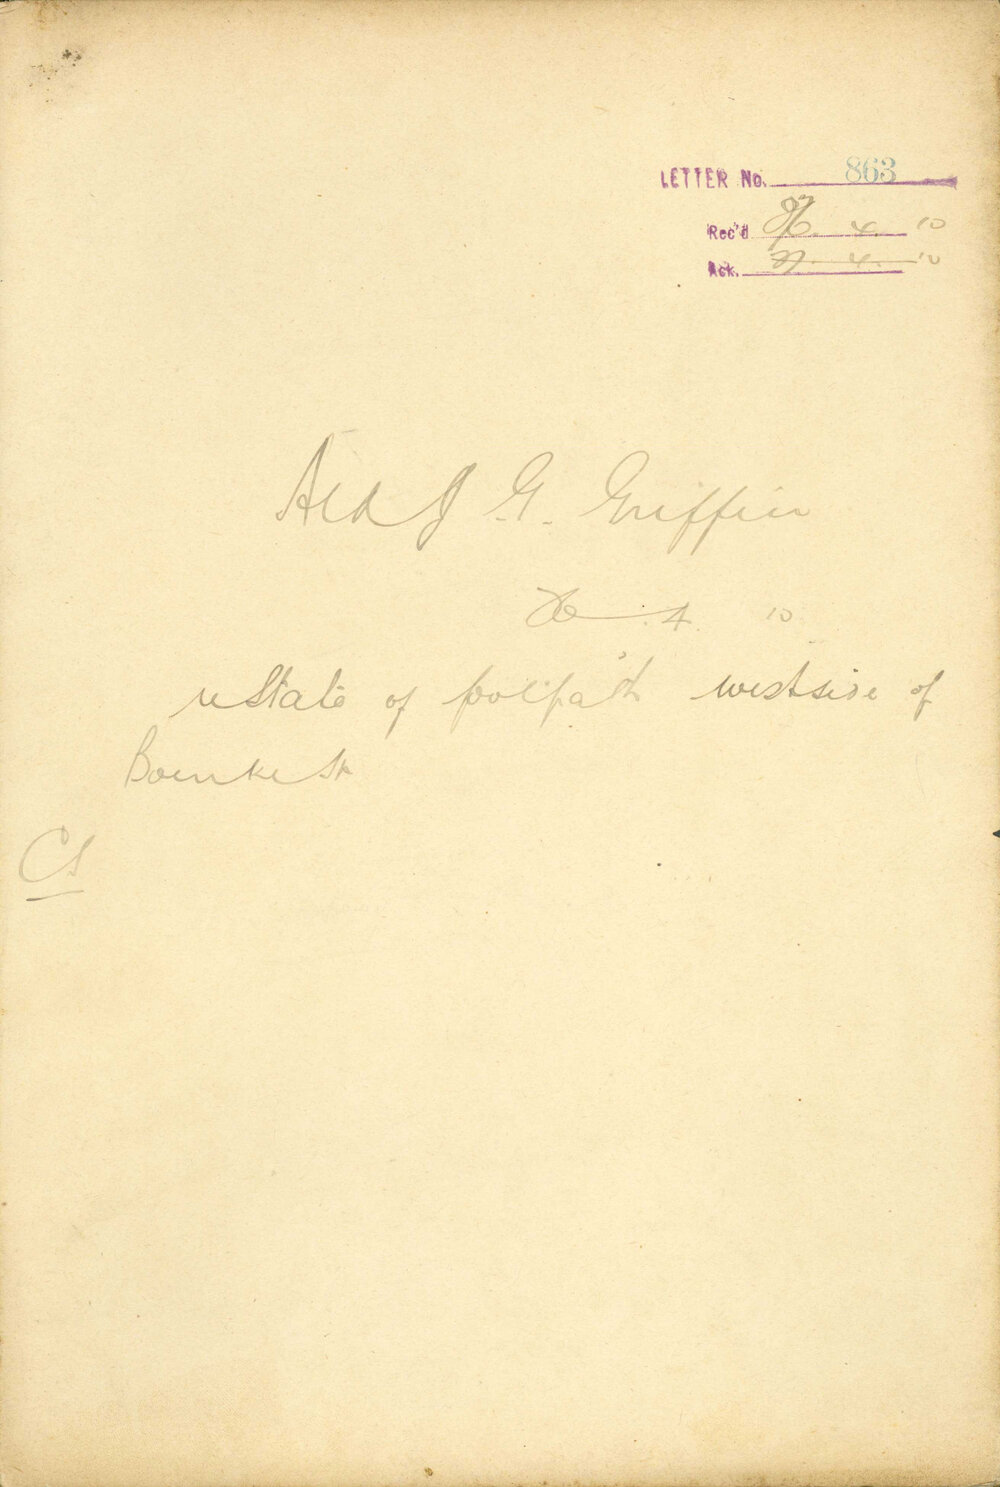 LETTER No. 863
Rec'd 4. 10
Ack. 4. 10
Ald J. G. Griffin
4. 10
re State of footpath westside of
Bourke St
CS